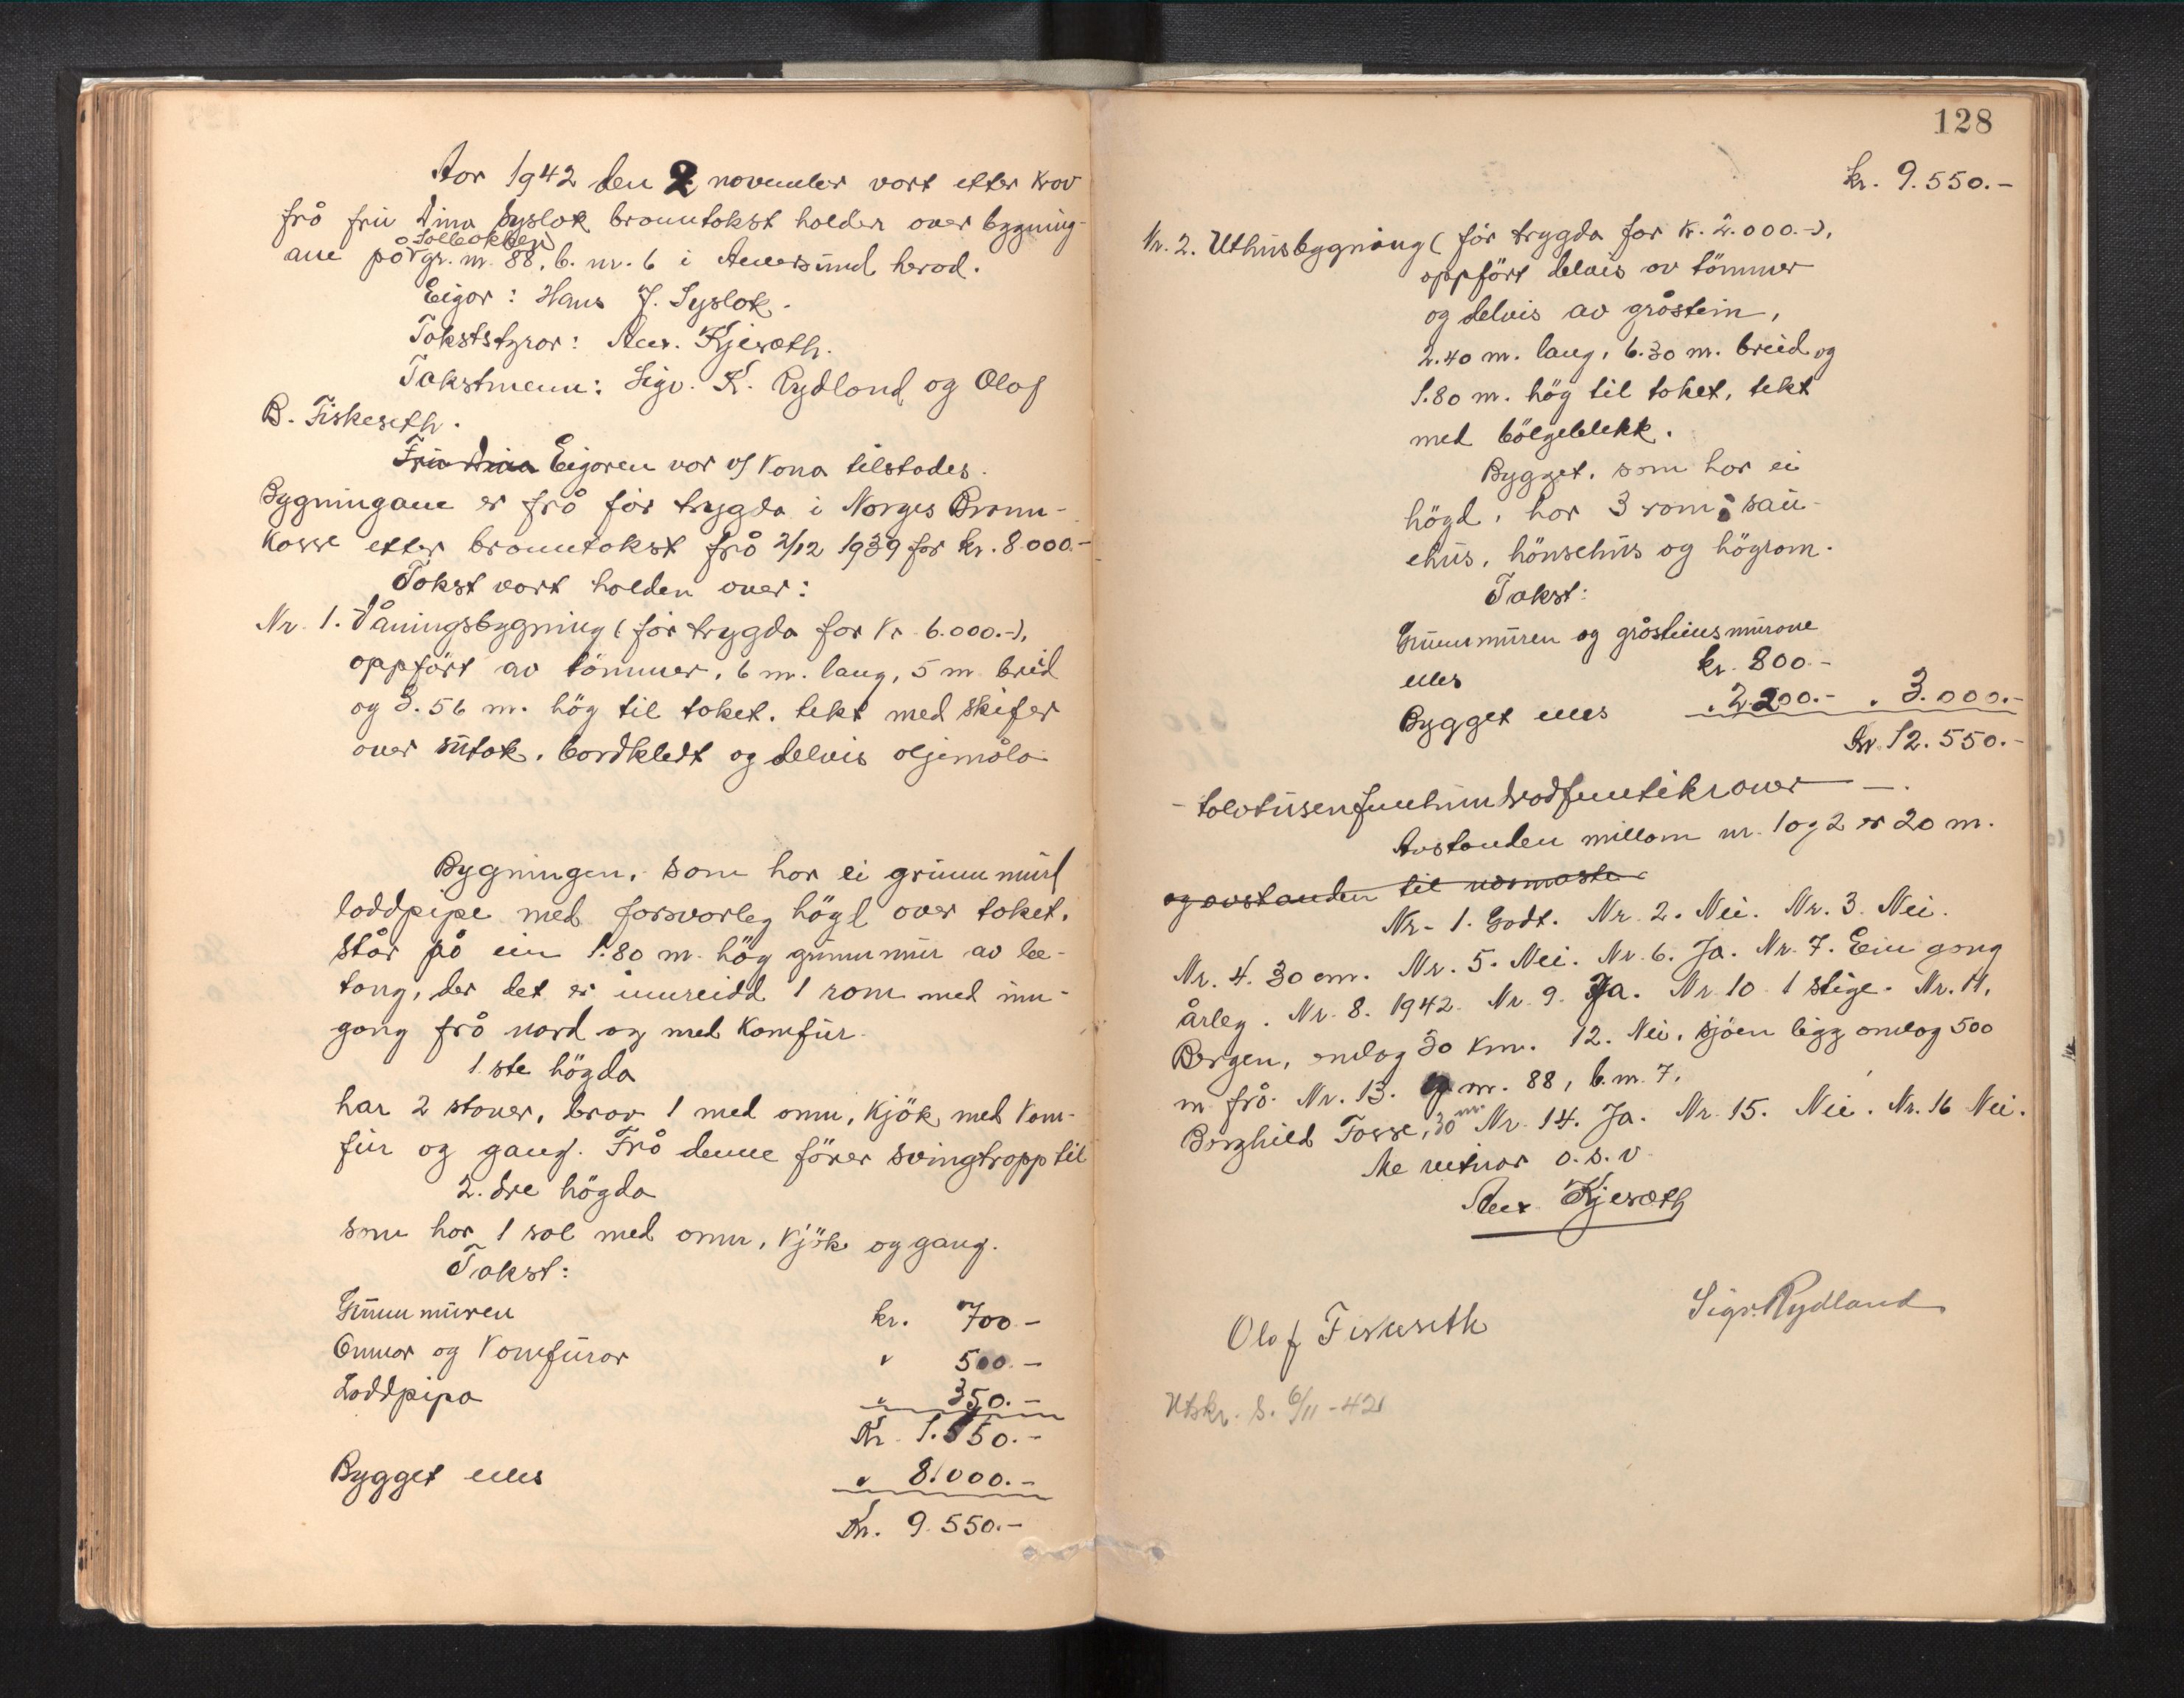 Aar 1942 den 2 november vart etter krav
frå fru Dina Syslak branntakst halden over bygning-
Solbakken
ane på gr. nr. 88, b. nr. 6 i Austevoll herad.
Eigar: Hans J. Syslak.
Takststyrar: Kjeræth.
Takstmenn: Sigv. K. Rydland og Olaf
B. Fiskeseth.
Fru Dina Eigaren var v/ kona tilstades.
Bygningane er frå før trygda i Norges Brann-
kasse etter branntakst frå 2/12 1939 for kr. 8.000.-
Takst vart halden over:
Nr. 1. Våningsbygning (før trygda for kr. 6.000.-),
oppført av tömmer, 6 m. lang, 5 m. breid
og 3.56 m. hög til taket, tekt med skifer
over sutak, bordkledt og delvis oljemåla
Bygningen, som har ei grunnmurt
loddpipe med forsvarleg högd over taket,
står på ein 1.80 m. hög grunnmur av be-
tong, der det er innreidd 1 rom med inn-
gang frå nord og med komfur.
1.ste högda
har 2 stover, derav 1 med omn, kjök med kom-
fur og gang. Frå denne fører svingtrapp til
2.dre högda
som har 1 sal med omn, kjök og gang.
Takst:
Grunnmuren kr. 700.-
Omnar og komfurar " 500.-
Loddpipa " 350.-
Kr. 1.550.-
Bygget elles " 8.000.-
Kr. 9.550.-
128
kr. 9.550.-
Nr. 2. Uthusbygning (før trygda for kr. 2.000.-),
oppført delvis av tömmer
og delvis av gråstein,
2.40 m. lang, 6.30 m. breid og
1.80 m. hög til taket, tekt
med bölgeblekk.
Bygget, som har ei
högd, har 3 rom: sau-
ehus, hönsehus og högrom.
Takst:
Grunnmuren og gråsteinsmurane
kr. 800.-
elles
Bygget elles " 2.200.- " 3.000.-
Kr. 12.550.-
- tolvtusenfemhundradfemtikroner -
Avstanden millom nr. 1 og 2 er 20 m.
og avstanden til næmaste
Nr. 1. Godt. Nr. 2. Nei. Nr. 3. Nei.
Nr. 4. 30 cm. Nr. 5. Nei. Nr. 6. Ja. Nr. 7. Ein gong
årleg. Nr. 8. 1942. Nr. 9. Ja. Nr. 10. 1 stige. Nr. 11.
Bergen, omlag 30 km. 12. Nei, sjöen ligg omlag 500
m frå. Nr. 13. g. nr. 88, b. nr. 7,
Borghild Fosse, 30 m. Nr. 14. Ja. Nr. 15. Nei. Nr. 16 Nei.
Me vitnar o.s.v.
Kjeræth
Sigv. Rydland
Olaf Fiskeseth
Utskr. S. 6/11-42